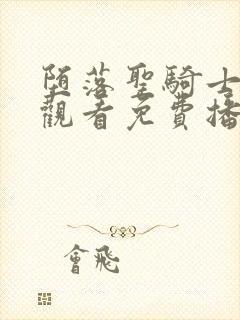 堕落聖騎士
觀看免費播
會飛